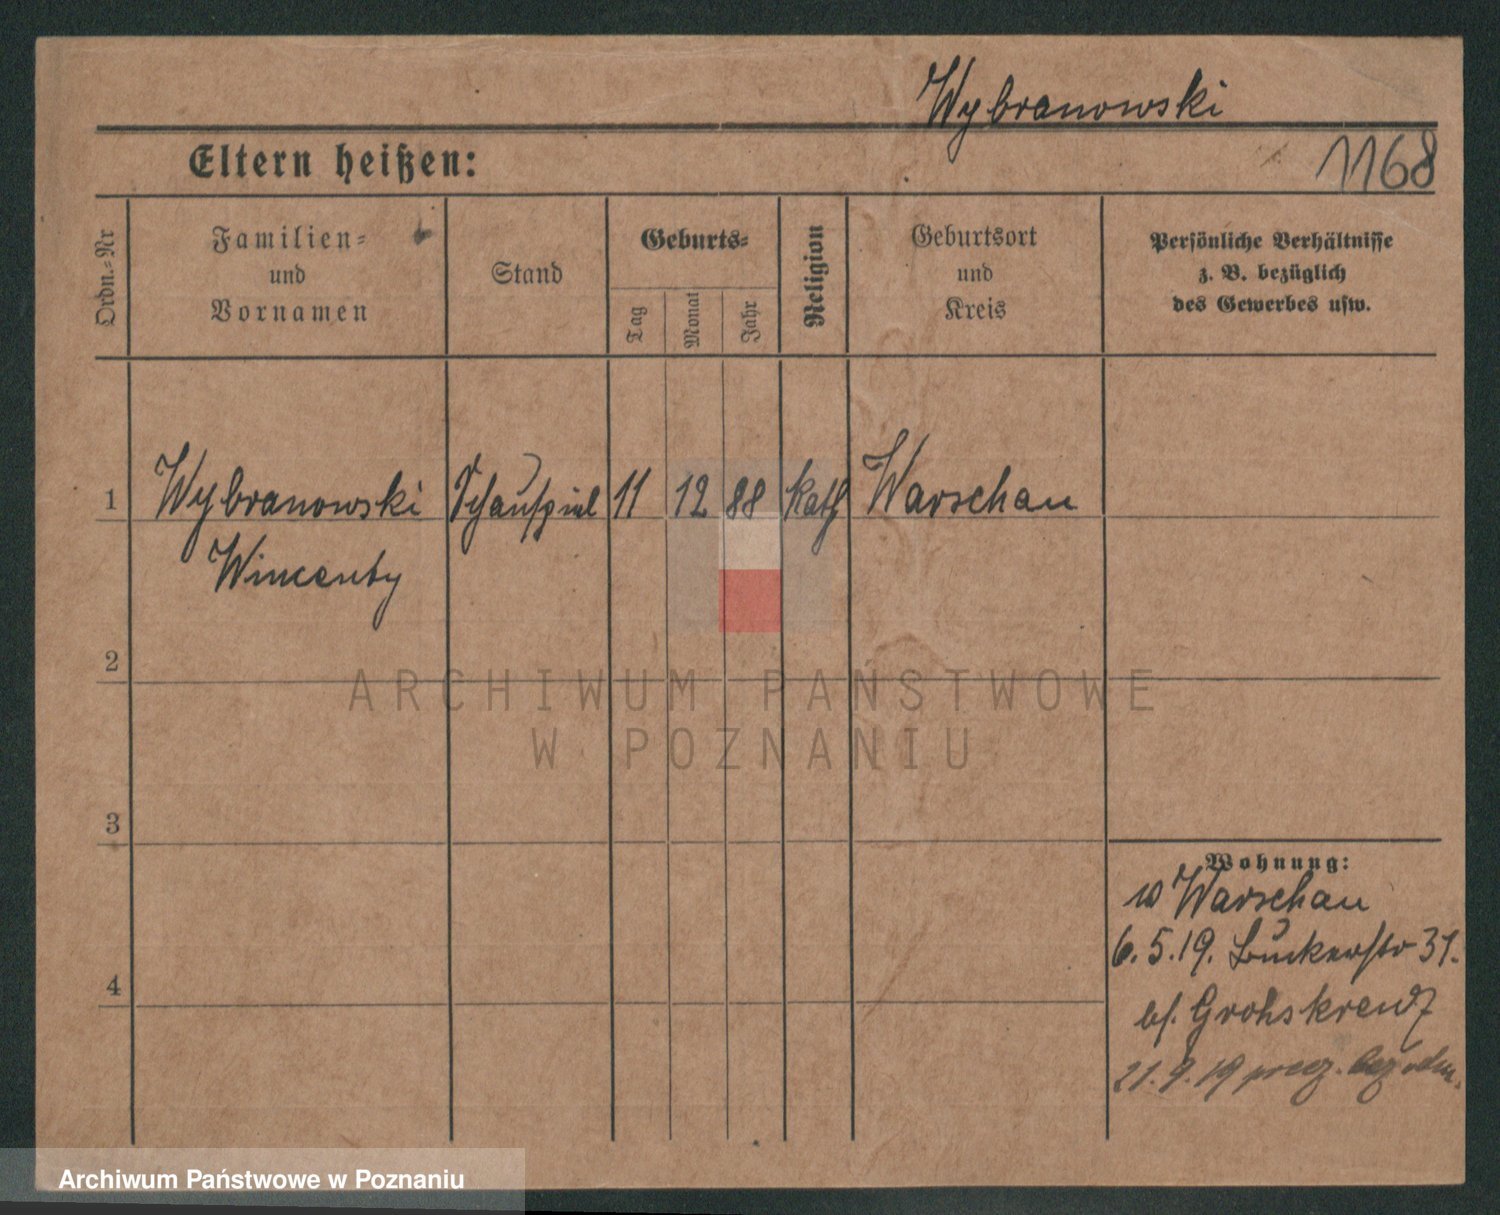 Wybranowski
Eltern heißen:
1168
Ordn.-Nr
Familien-
und
Vornamen
Stand
Geburts-
Tag
Monat
Jahr
Religion
Geburtsort
und
Kreis
Persönliche Verhältnisse
z. B. bezüglich
des Gewerbes usw.
1 Wybranowski Schauspiel 11 12 88 kath Warschau
Wincenty
2
3
4
Wohnung:
Warschau
6.5.19. Bukerstr 31.
bs. Grohskreuz
21.9.19
ARCHIWUM PAŃSTWOWE
W POZNANIU
Archiwum Państwowe w Poznaniu